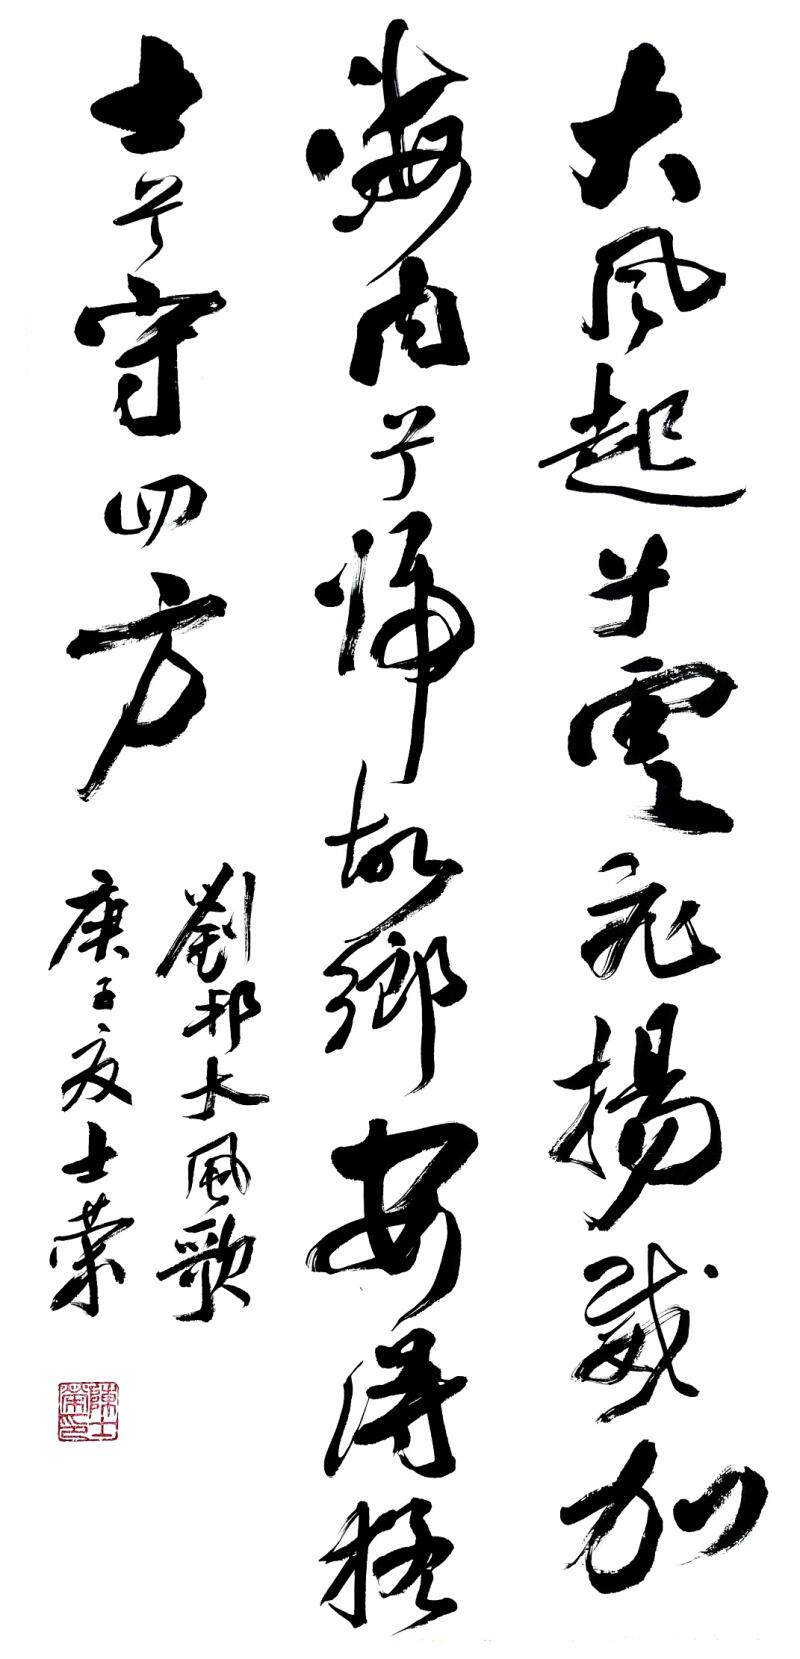 大風起兮雲飛揚威加
海内兮歸故鄉安得猛
士兮守四方
劉邦大風歌
庚子夏士榮
陳士榮印